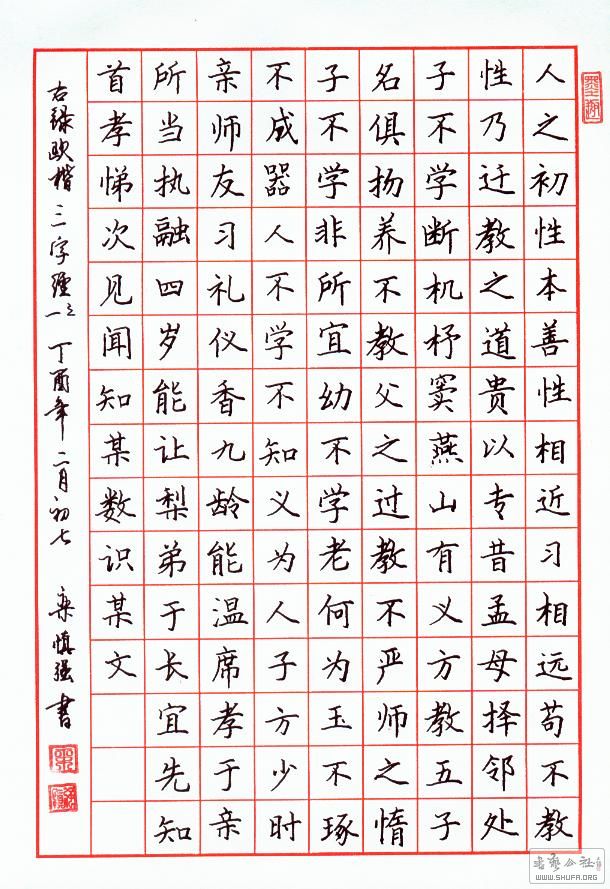 人之初性本善性相近习相远苟不教
性乃迁教之道贵以专昔孟母择邻处
子不学断机杼窦燕山有义方教五子
名俱扬养不教父之过教不严师之惰
子不学非所宜幼不学老何为玉不琢
不成器人不学不知义为人子方少时
亲师友习礼仪香九龄能温席孝于亲
所当执融四岁能让梨弟于长宜先知
首孝悌次见闻知某数识某文
右录欧楷三字經之一 丁酉年二月初七 栾慎强书
书法公社
WWW.SHUFA.ORG